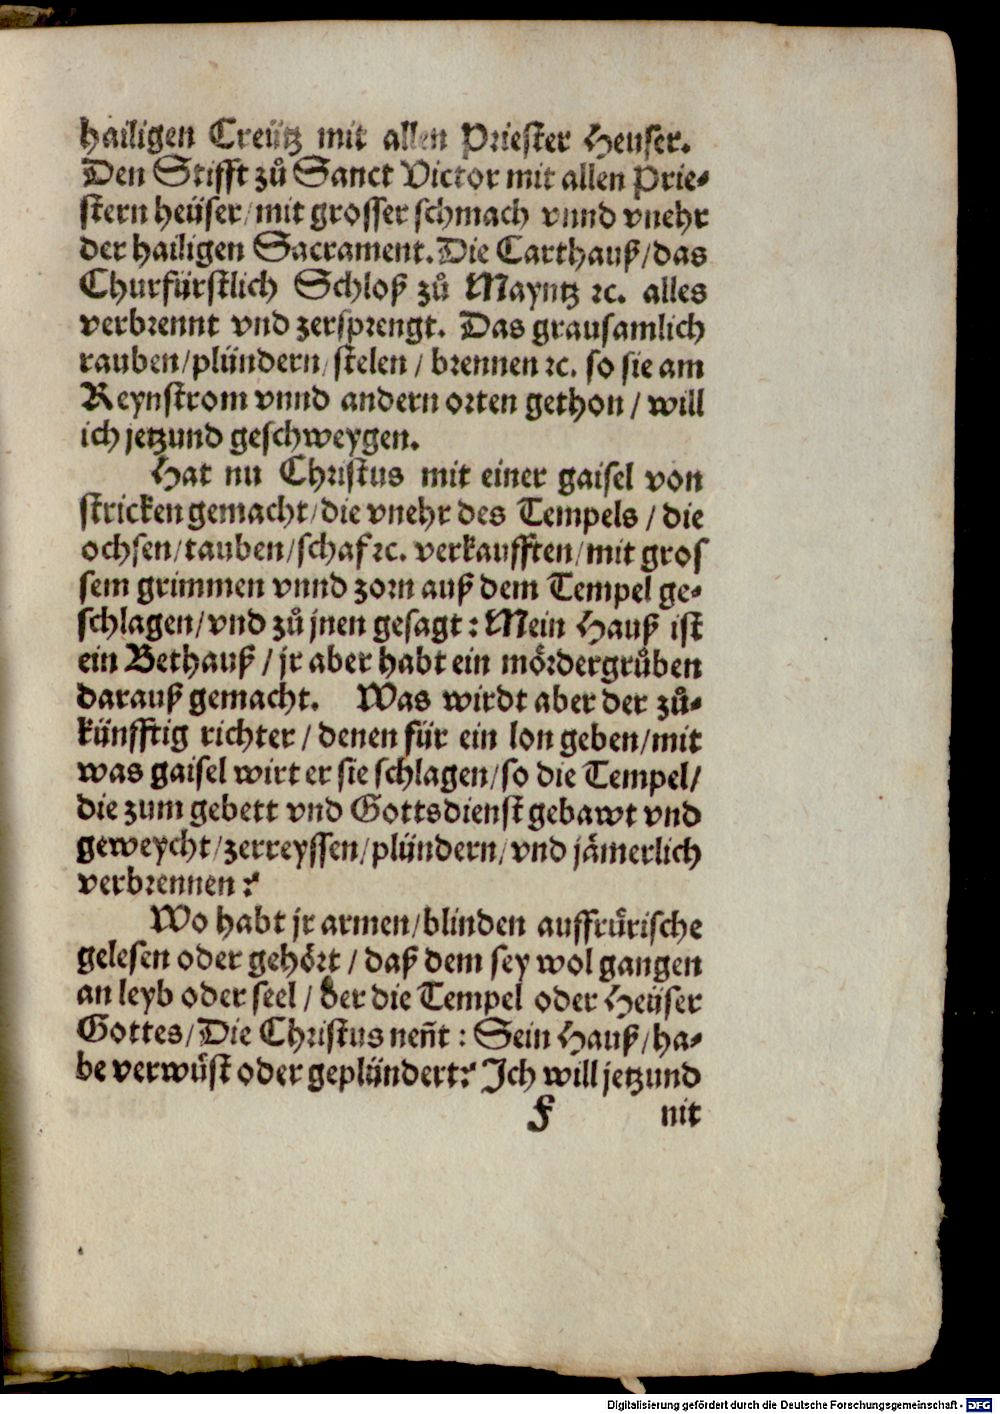 hailigen Creütz mit allen Priester Heuser.
Den Stifft zů Sanct Victor mit allen Prie-
stern heüser/mit grosser schmach vnnd vnehr
der hailigen Sacrament. Die Carthauß/das
Churfürstlich Schloß zů Mayntz ꝛc. alles
verbrennt vnd zersprengt. Das grausamlich
rauben/plündern/stelen / brennen ꝛc. so sie am
Reynstrom vnnd andern orten gethon / will
ich jetzund geschweygen.
Hat nu Christus mit einer gaisel von
stricken gemacht/die vnehr des Tempels / die
ochsen/tauben/schaf ꝛc. verkaufften/mit gros
sem grimmen vnnd zorn auß dem Tempel ge-
schlagen/vnd zů jnen gesagt: Mein Hauß ist
ein Bethauß / jr aber habt ein mördergrůben
darauß gemacht. Was wirdt aber der zů-
künfftig richter / denen für ein lon geben/mit
was gaisel wirt er sie schlagen/so die Tempel/
die zum gebett vnd Gottsdienst gebawt vnd
geweycht/zerreyssen/plündern/vnd jämerlich
verbrennen?
Wo habt jr armen/blinden auffrůrische
gelesen oder gehört / daß dem sey wol gangen
an leyb oder seel / der die Tempel oder Heüser
Gottes/Die Christus neñt: Sein Hauß/ha-
be verwüst oder geplündert? Ich will jetzund
F nit
Digitalisierung gefördert durch die Deutsche Forschungsgemeinschaft - DFG